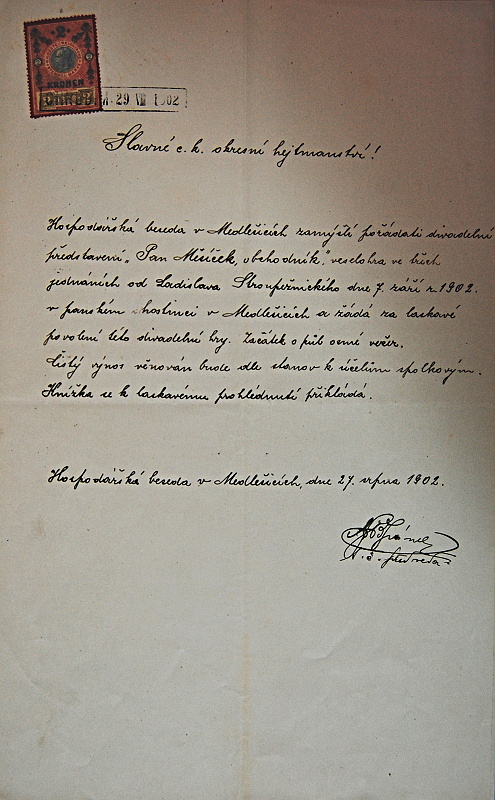 2
KRONEN
29 VIII 1902
Slavné c. k. okresní hejtmanství!
Hospodářská beseda v Medlešicích zamýšlí pořádati divadelní
představení „Pan Měsíček, obchodník", veselohra ve třech
jednáních od Ladislava Stroupežnického dne 7. září r. 1902.
v panském hostinci v Medlešicích a žádá za laskavé
povolení této divadelní hry. Začátek o půl osmé večer.
Čistý výnos věnován bude dle stanov k účelům spolkovým.
Knížka se k laskavému prohlédnutí přikládá.
Hospodářská beseda v Medlešicích, dne 27. srpna 1902.
t. č. předseda